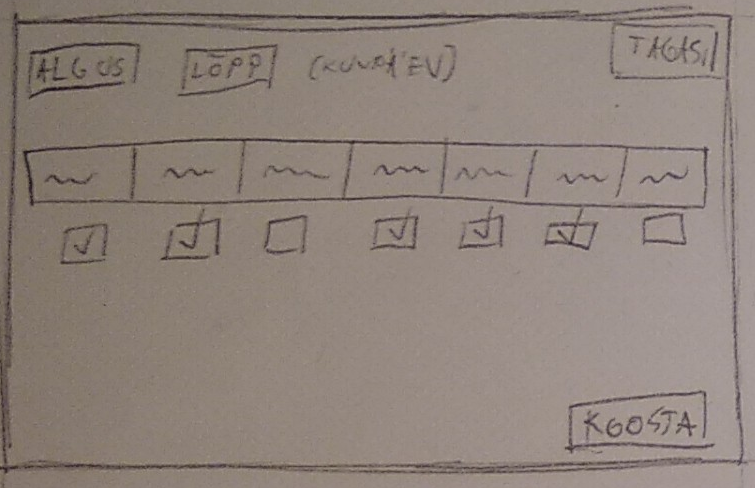 ALGUS LÕPP (KUUPÄEV) TAGASI
KOOSTA